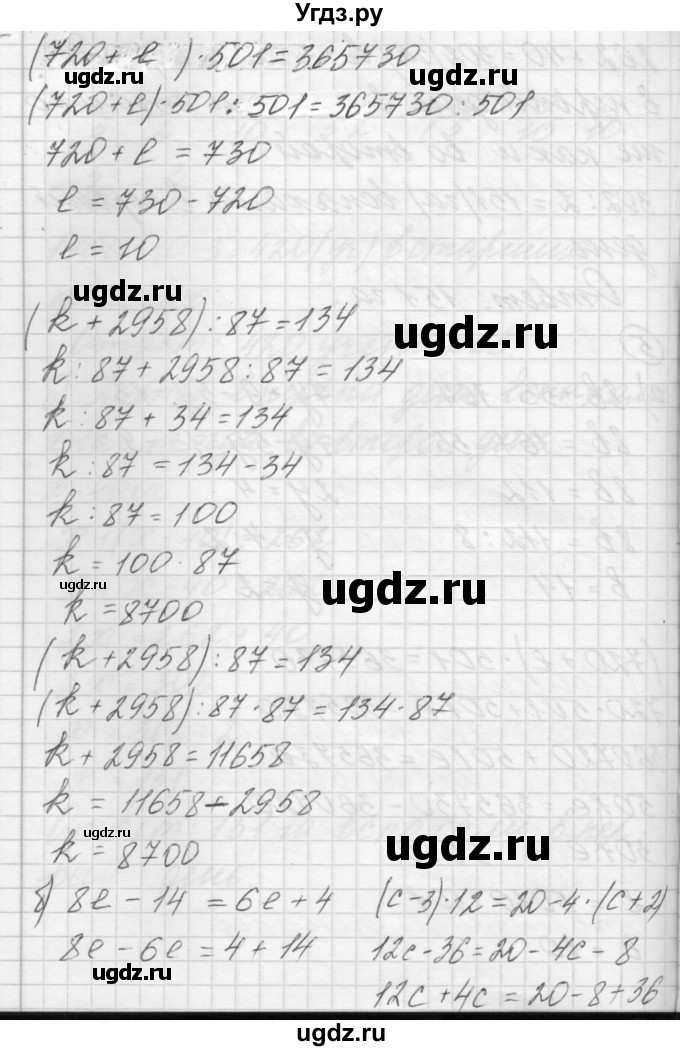 Угдз.ру
(720 + l) · 501 = 365730
ugdz.ru
(720 + l) · 501 : 501 = 365730 : 501
720 + l = 730
l = 730 - 720
l = 10
ugdz.ru
(k + 2958) : 87 = 134
ugdz.ru
k : 87 + 2958 : 87 = 134
k : 87 + 34 = 134
k : 87 = 134 - 34
k : 87 = 100
k = 100 · 87
ugdz.ru
ugdz.ru
k = 8700
(k + 2958) : 87 = 134
(k + 2958) : 87 · 87 = 134 · 87
k + 2958 = 11658
k = 11658 - 2958
ugdz.ru
k = 8700
ugdz.ru
б) 8l - 14 = 6l + 4
8l - 6l = 4 + 14
ugdz.ru
(c - 3) · 12 = 20 - 4 · (c + 2)
12c - 36 = 20 - 4c - 8
12c + 4c = 20 - 8 + 36
ugdz.ru